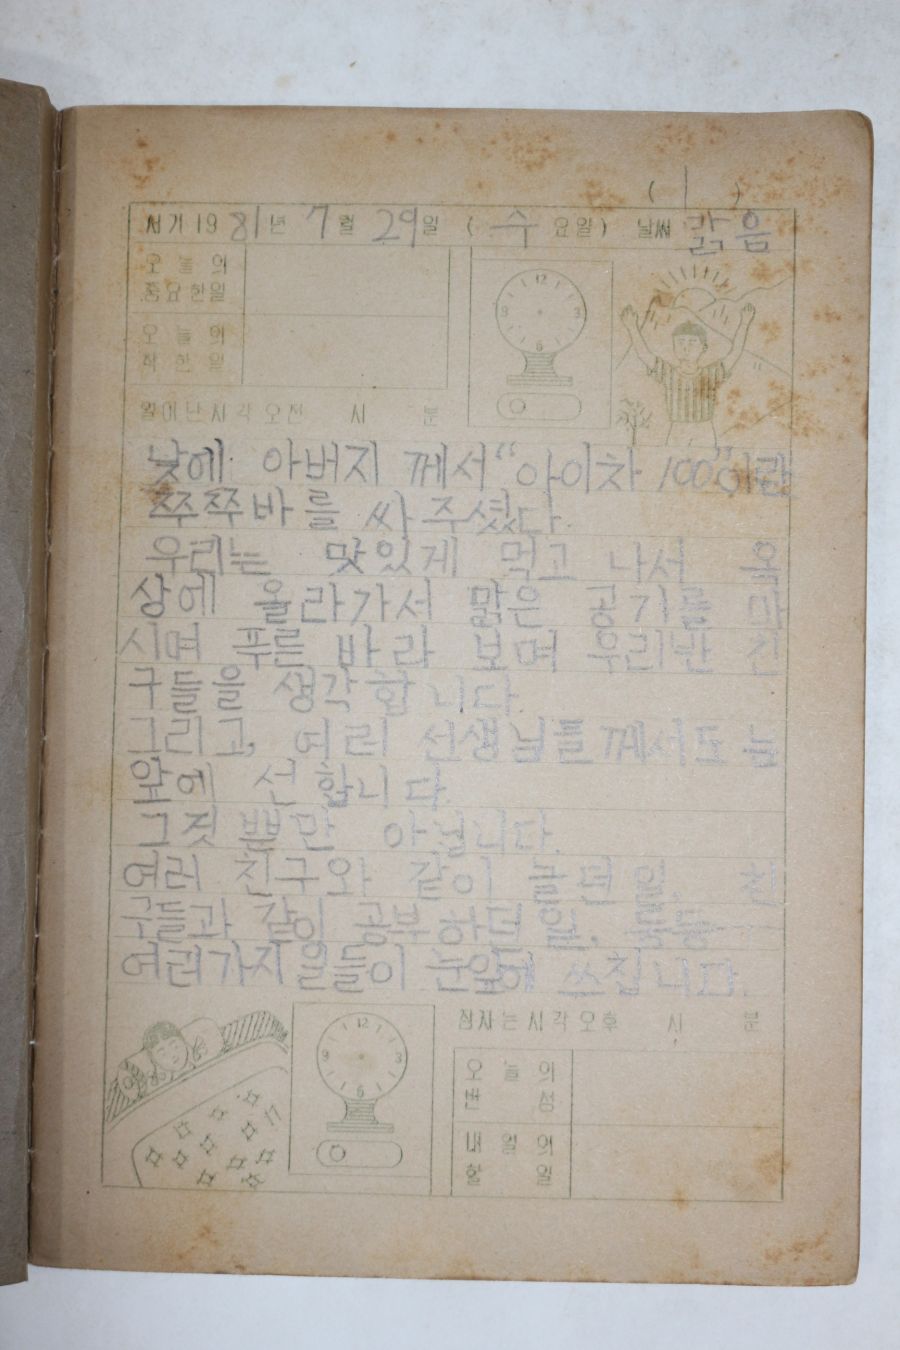 ( 1 )
서기 19 81년 7월 29일 ( 수 요일) 날씨 맑음
오늘의
중요한일
12
3
6
9
오늘의
착한일
일어난시각 오전 시 분
낮에 아버지 께서 “아이차 100”이란
쭈쭈바를 싸 주셨다.
우리는 맛있게 먹고 나서 옥
상에 올라가서 맑은 공기를 마
시며 푸른 바라 보며 우리반 친
구들을 생각합니다.
그리고, 여러 선생님들께서도 눈
앞에 선합니다.
그것뿐만 아닙니다.
여러 친구와 같이 놀던 일, 친
구들과 같이 공부하던 일,
여러가지 일들이 눈앞에 쓰칩니다.
12
3
6
9
잠자는시각 오후 시 분
오늘의
반성
내일의
할일